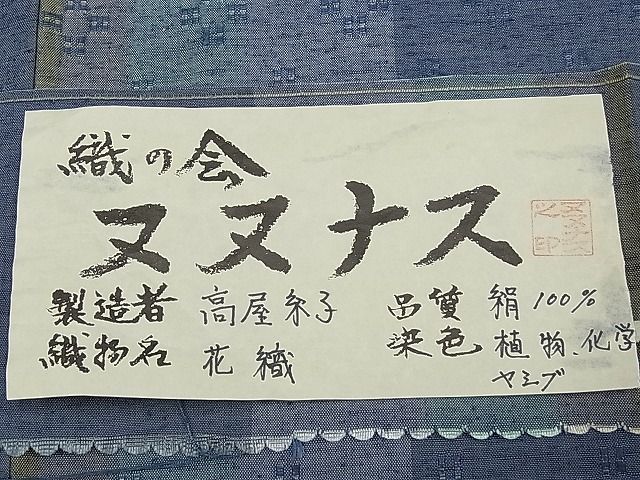 織の会
ヌヌナス
製造者 高屋糸子
織物名 花織
品質 絹100%
染色 植物、化学
ヤミブ